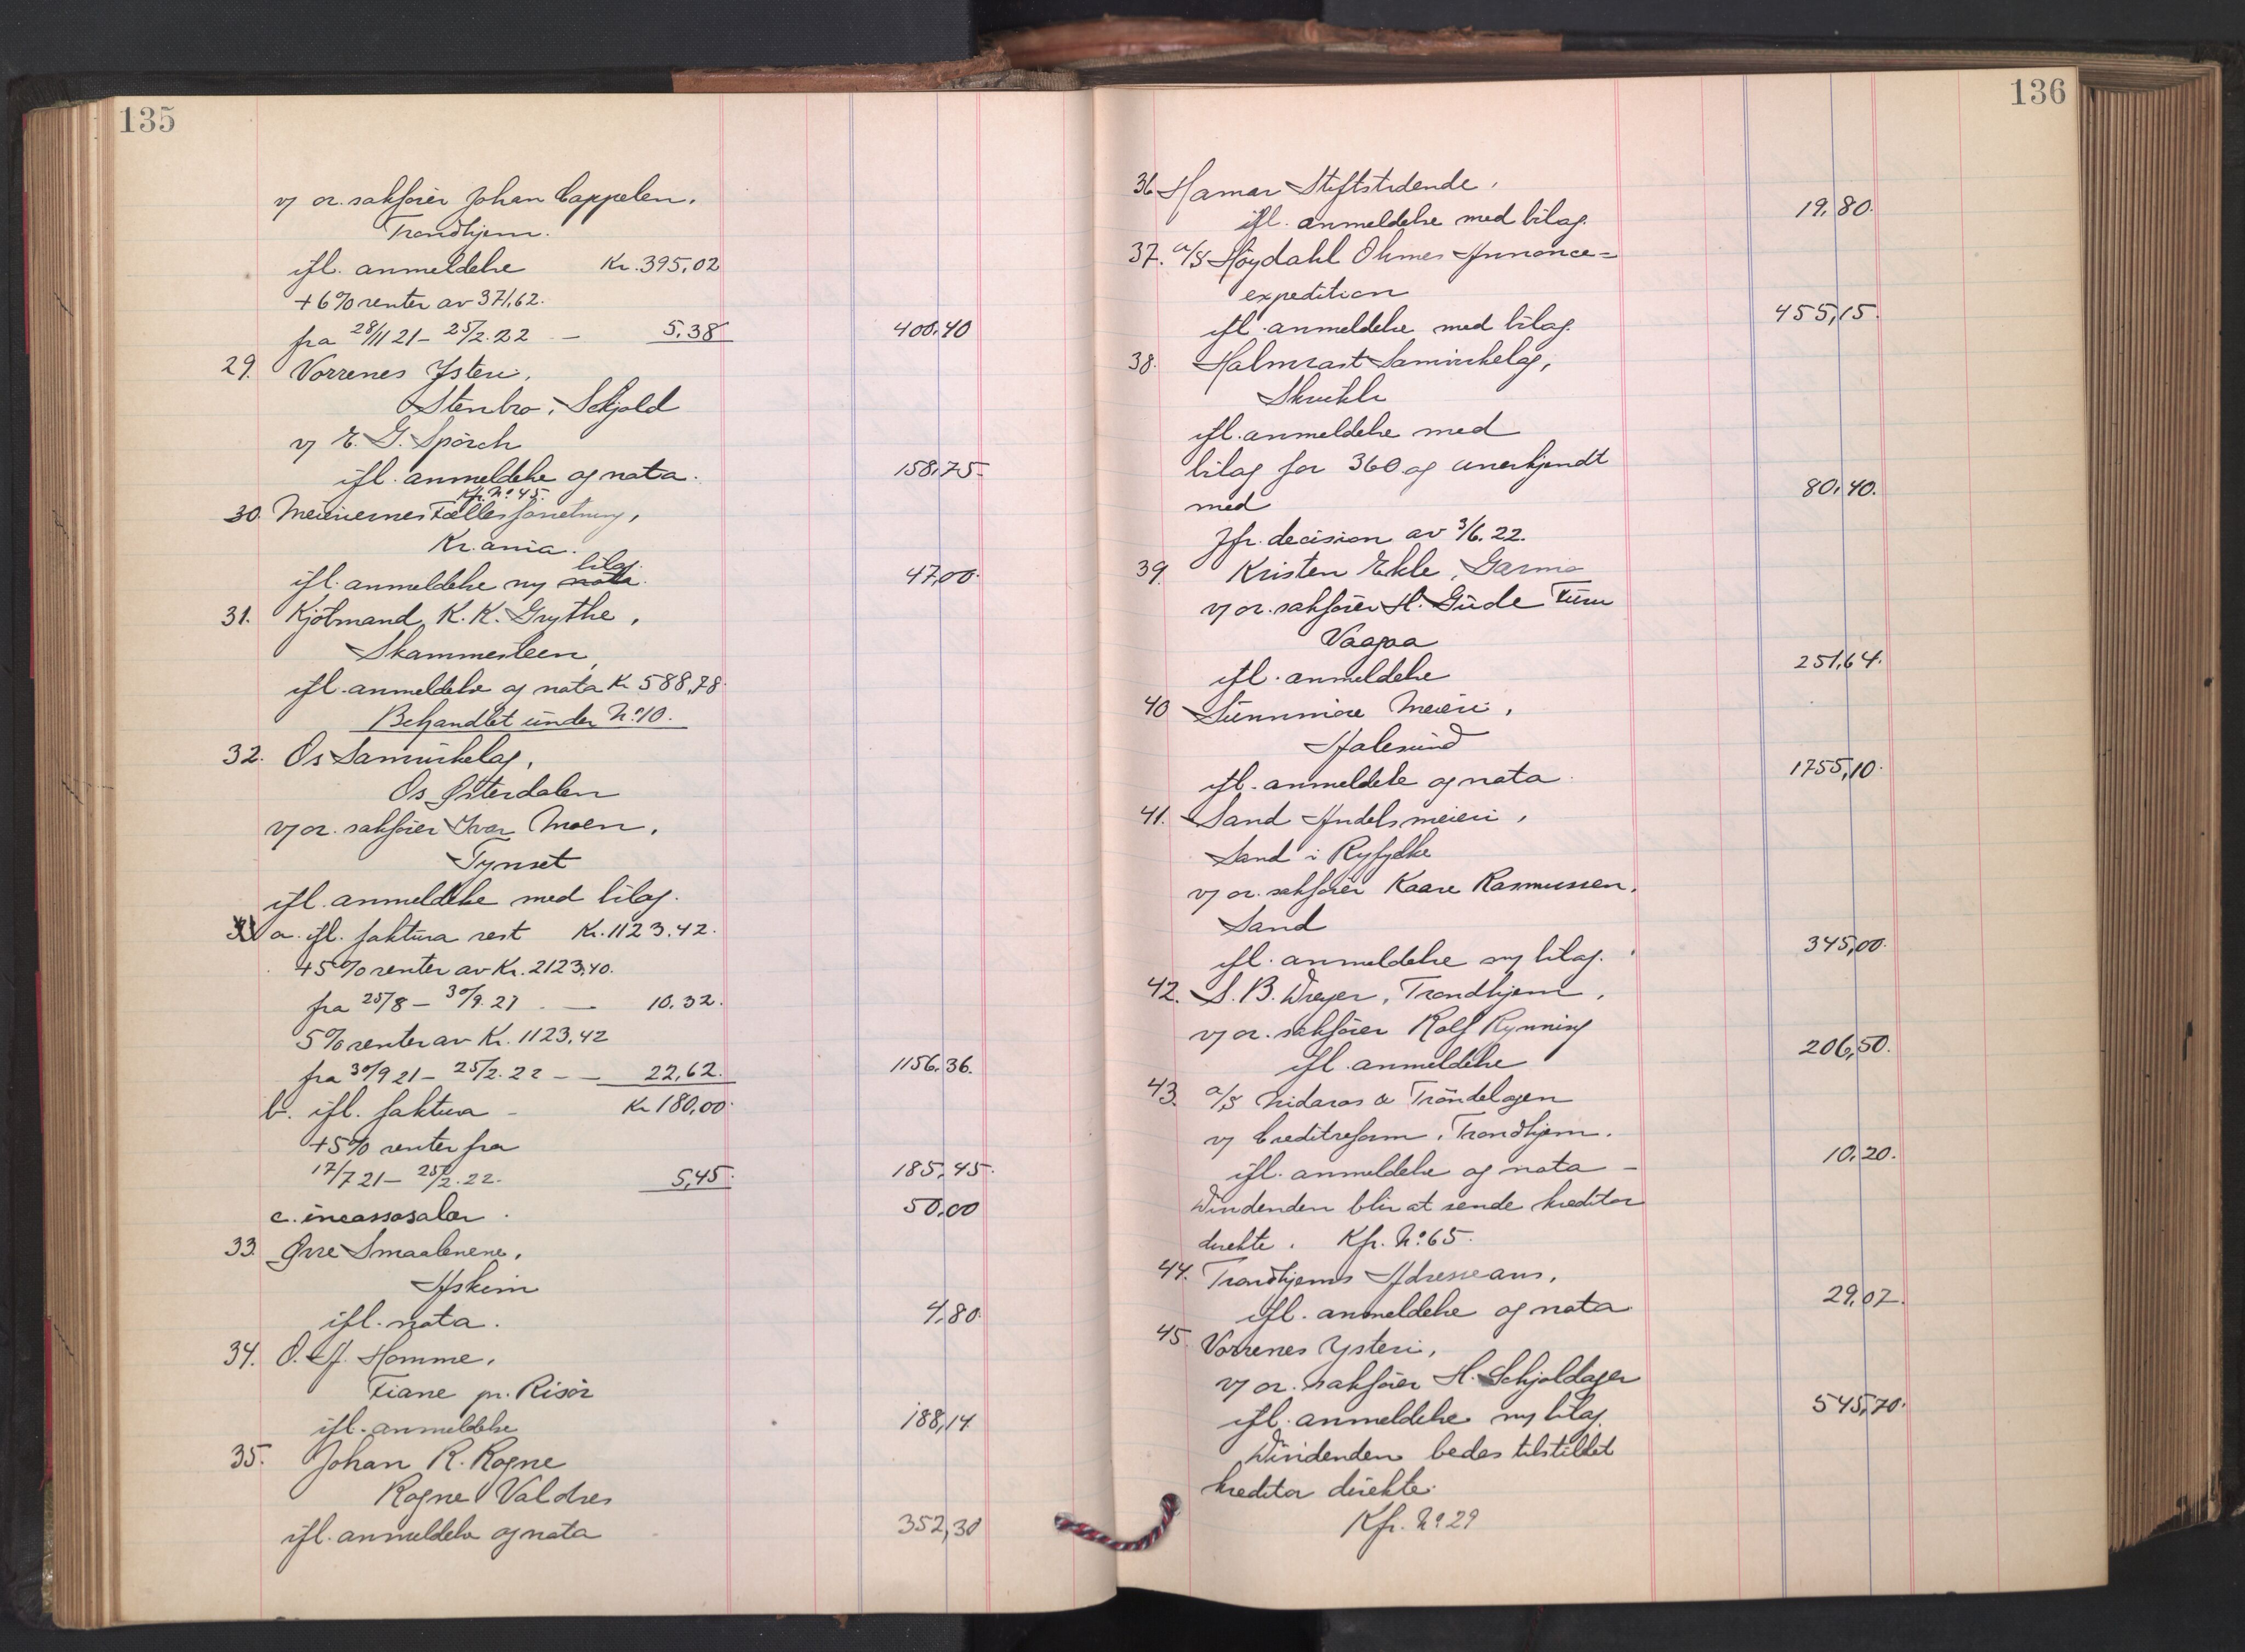 135
v/ or. sakfører Johan Cappelen,
Trondhjem.
ifl. anmeldelse Kr. 395,02
+ 6% renter av 371,62.
fra 28/11 21 - 25/2. 22 - 5,38 400,40
29. Vorrenes Ysteri,
Stenbro, Skjold
v/ E. G. Spörch
ifl. anmeldelse og nota. 158,75
Kfr. No 45.
30. Meieriernes Fællesforretning,
Kr.ania.
bilag.
ifl. anmeldelse m/ nota. 47,00
31. Kjøbmand K. K. Grythe,
Skammesteen,
ifl. anmeldelse og nota Kr 588,78
Behandlet under No. 10.
32. Os Samvirkelag,
Os Østerdalen
v/ or. sakfører Ivar Moen,
Tynset
ifl. anmeldelse med bilag.
a. ifl. faktura rest Kr. 1123.42.
+ 5% renter av Kr. 2123,40.
fra 25/8 - 30/9. 21 - 10,32.
5% renter av Kr. 1123,42
fra 30/9 21 - 25/2. 22 - - 22,62. 1156,36.
b. ifl. faktura - Kr 180,00
+ 5% renter fra
17/7 21 - 25/2. 22. 5,45 185,45
c. incassosalær. 50,00
33. Øvre Smaalenene,
Askim
ifl. nota. 4,80
34. O. A. Homme,
Fiane pr. Risör
ifl. anmeldelse 188,14
35. Johan R. Rogne
Rogne Valdres
ifl. anmeldelse og nota 352,30
136
36 Hamar Stiftstidende,
ifl. anmeldelse med bilag. 19,80.
37. a/s Høydahl Ohmes Annonce=
expedition
ifl. anmeldelse med bilag. 455,15.
38. Halmrast Samvirkelag,
Skrukli
ifl. anmeldelse med
bilag for 360 og anerkjendt
med 80,40.
Jfr. decision av 3/6. 22.
39. Kristen Ekle, Garmo
v/ or. sakfører H. Gude Furu
Vaagaa
ifl. anmeldelse 251,64.
40 Sunnmøre Meieri,
Aalesund
ifl. anmeldelse og nota. 1755,10
41. Sand Andelsmeieri,
Sand i Ryfylke
v/ or. sakfører Kaare Rasmussen,
Sand
ifl. anmeldelse m/ bilag. 345,00
42. S. B. Dreyer, Trondhjem,
v/ or. sakfører Rolf Rynning
ifl. anmeldelse 206,50.
43. a/s Nidaros & Trøndelagen
v/ Creditreform, Trondhjem.
ifl. anmeldelse og nota - 10,20.
Dividenden blir at sende kreditor
direkte. Kfr. No. 65.
44. Trondhjems Adresseavis,
ifl. anmeldelse og nota 29,02.
45. Vorrenes Ysteri,
v/ or. sakfører H. Schjoldager
ifl. anmeldelse m/ bilag. 545,70
Dividenden bedes tilstillet
kreditor direkte.
Kfr. No 29